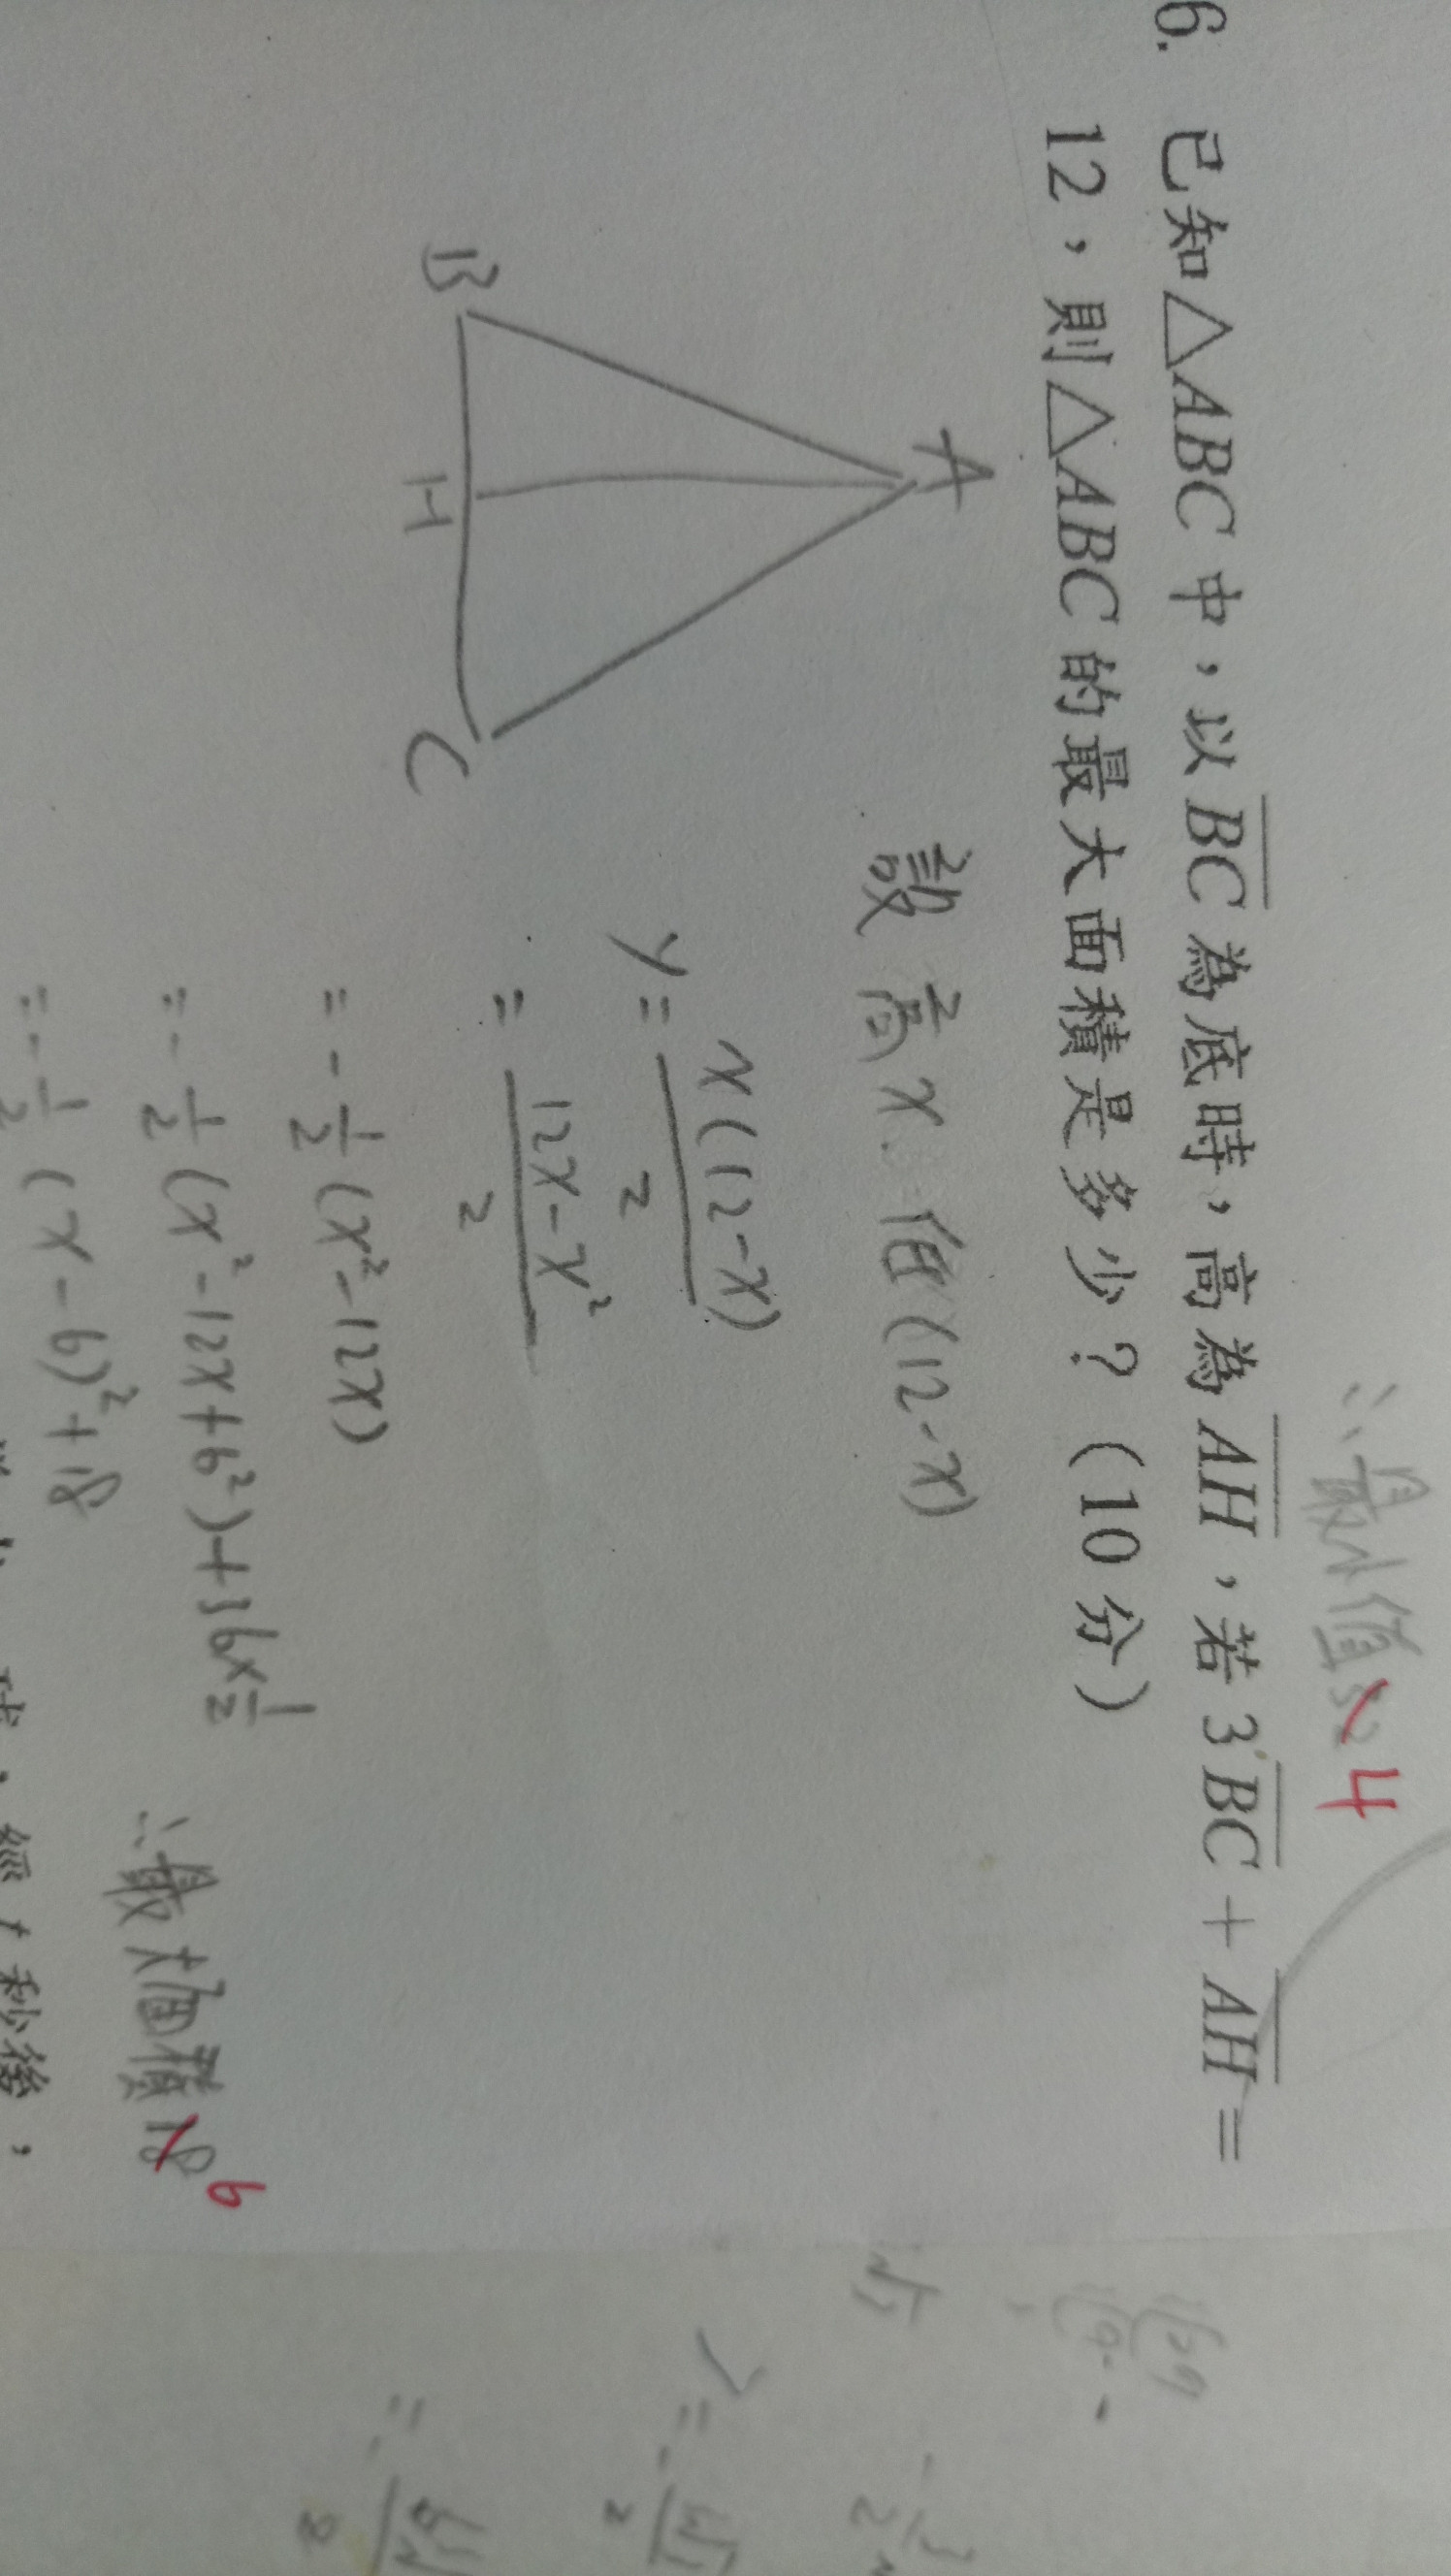 ∴最小值 4
6. 已知△ABC中,以BC為底時,高為AH,若3BC+AH=
12,則△ABC的最大面積是多少?(10分)
A
B
H
C
設高x 底(12-x)
y=x(12-x)/2
=12x-x²/2
=-1/2(x²-12x)
=-1/2(x²-12x+6²)+36×1/2
=-1/2(x-6)²+18
∴最大面積18 6
秒後,